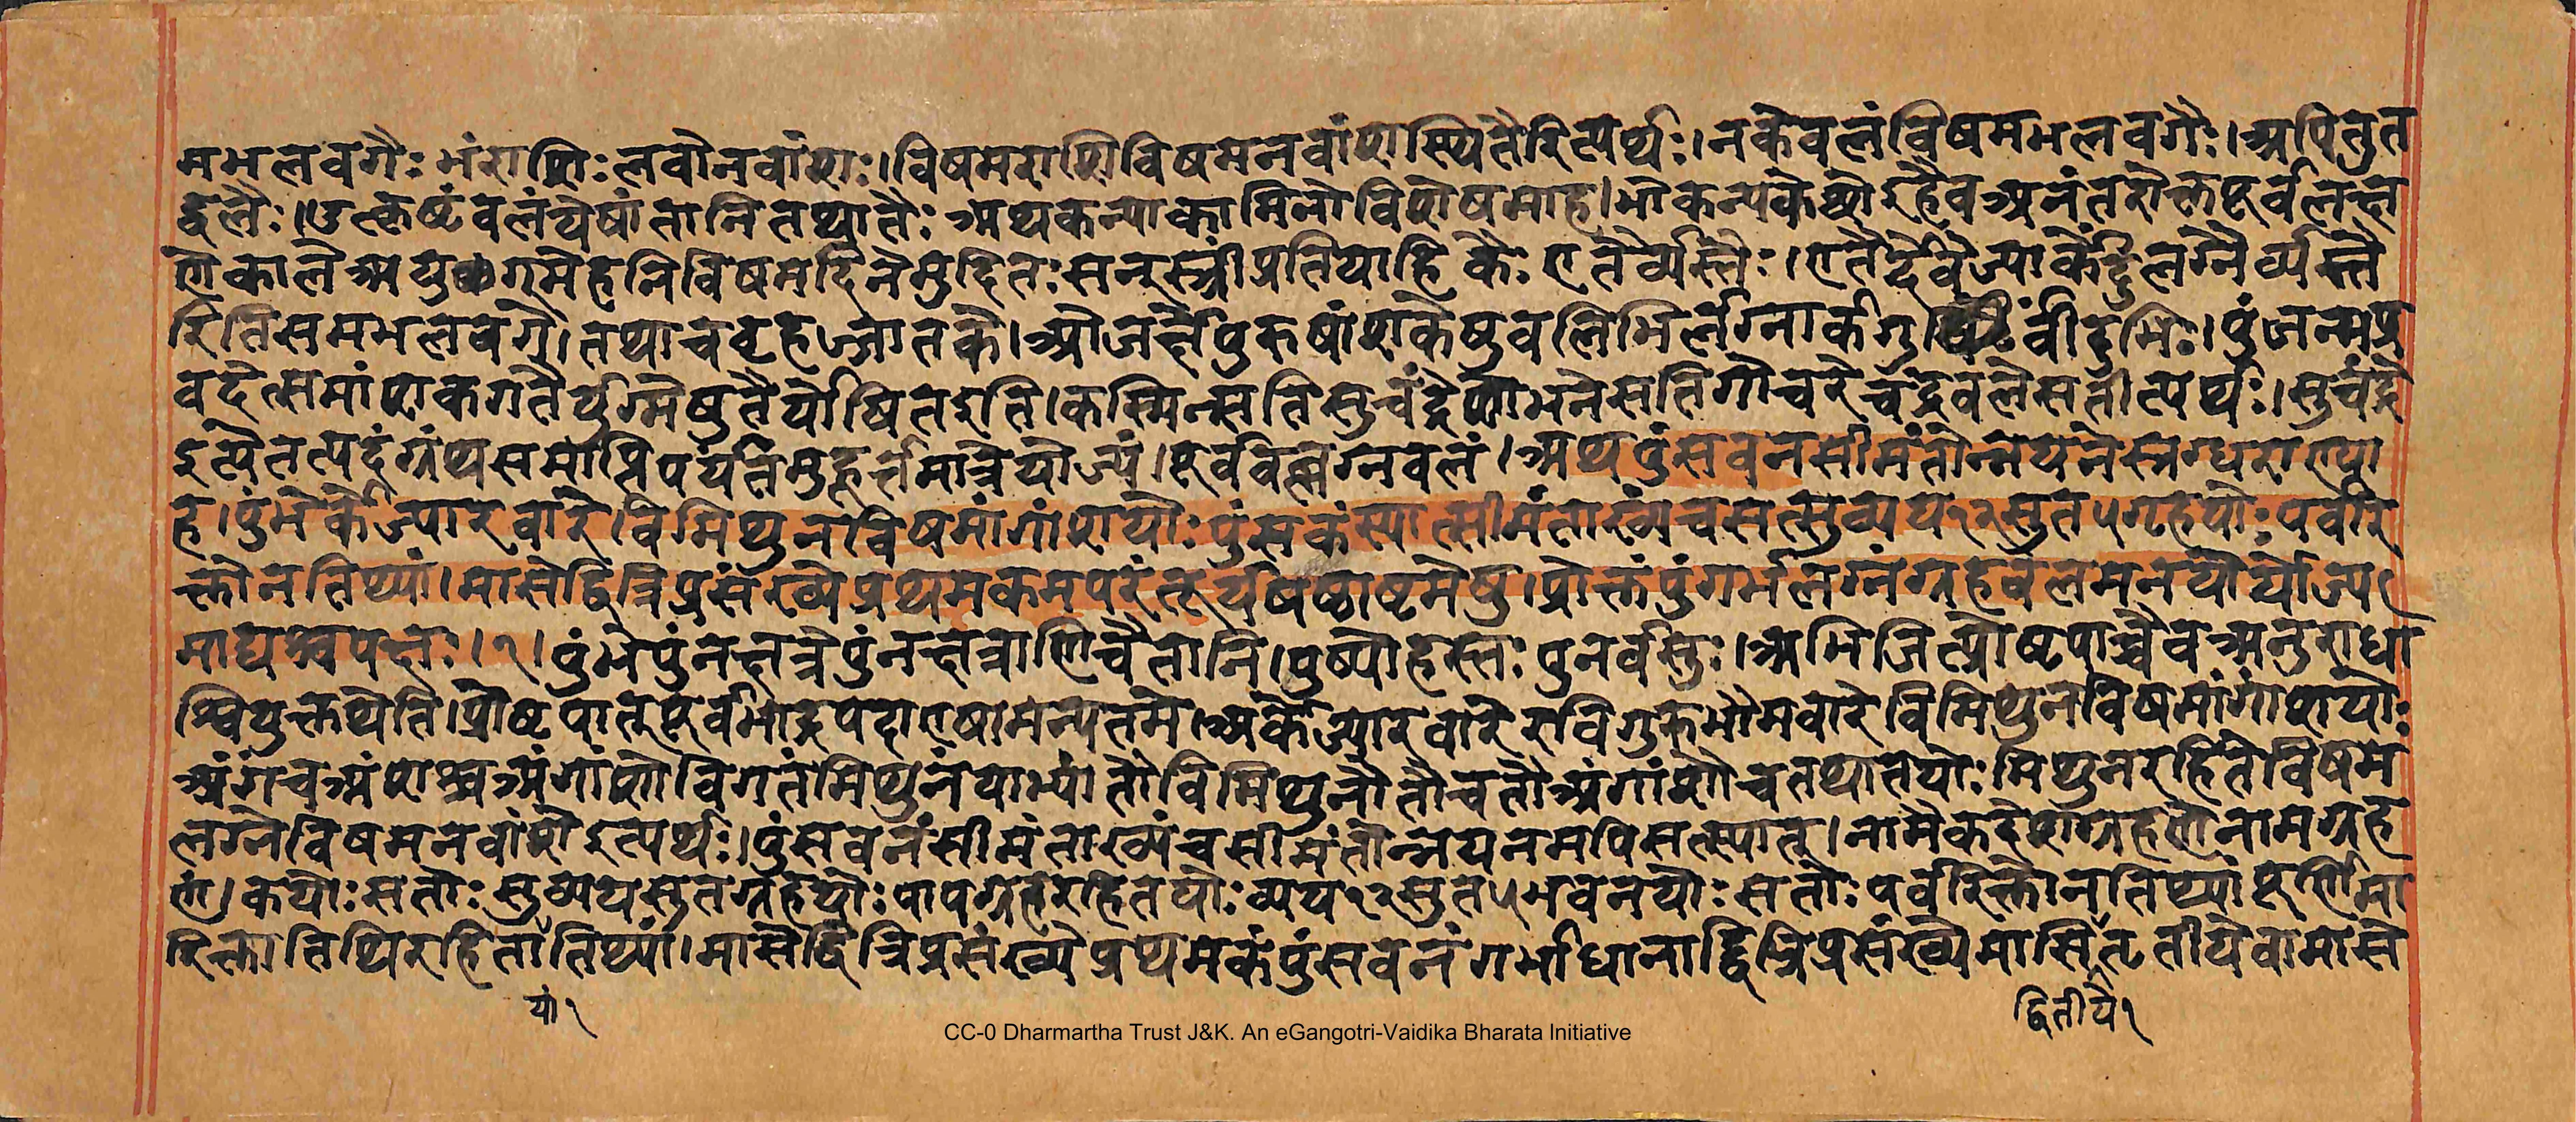 मभलवगैः भंराशिः लवौनवांशः।विषमराशिविषमनवांशस्थितैरित्यर्थः।नकेवलंविषमभलवगैः।अपितुत
द्बलैः।उत्कृष्टंबलंयेषांतानितथातैः अथकन्याकामिनोविशेषमाह।भोकन्यकेथोइहैवअनंतरोक्तपूर्वलक्ष
णेकाले अयुग्मेहनिविषमदिनेमुदितःसन्स्त्रींप्रतियाहि कैः एतैर्व्यस्तैः।एतैर्द्देवेज्यार्केंदुलग्नैर्व्यस्तै
रितिसमभलवगैः।तथाचबृहज्जातके।ओजर्क्षेपुरुषांशकेषुबलिभिर्लग्नार्कगुर्विंदुभिः।पुंजन्मप्र
वदेत्समांशकगतैर्युग्मेषुतैर्योषितइति।कस्मिन्सतिसुचंद्रेशोभनेसतिगोचरेचंद्रबलेसतीत्यर्थः।सुचंद्रे
इत्येतत्पदंग्रंथसमाप्तिपर्यंतंमुहूर्त्तमात्रेयोज्यं।पूर्ववल्लग्नबलं।अथपुंसवनसीमंतोन्नयनेस्रग्धराण्या
ह।पुंभेर्केज्यारवारे।विमिथुनविषमांगांशयोःपुंसकंस्यात्सीमंताख्यंचसत्सुव्यय१२सुत५गृहयोःपर्वरि
क्तोनतिथ्यां।मासेद्वित्रिप्रसंख्येप्रथमकमपरंतूर्यषष्ठाष्टमेषु।प्रोक्तंपुंगर्भलग्नंग्रहबलमनयोर्योज्य१
माद्यश्चपक्षः।१।पुंभेपुंनक्षत्रेपुंनक्षत्राणिचैतानि।पुष्योहस्तःपुनर्वसुः।अभिजित्प्रोष्टपाच्चैवअनुराधा
श्वियुक्तथेति।प्रोष्टपात्पूर्वभाद्रपदाएषामन्यतमे।अर्केज्यारवारेरविगुरुभौमवारेविमिथुनविषमांगांशयोः
अंगंचअंशश्चअंगांशौविगतंमिथुनंयाभ्यांतौविमिथुनौतौचतौअंगांशौचतथातयोःमिथुनरहितेविषमे
लग्नेविषमनवांशेइत्यर्थः।पुंसवनंसीमंताख्यंचसीमंतोन्नयनमपिसत्स्यात्।नामैकदेशग्रहणेनामग्रह
णं।कयोःसतोःसुव्ययसुतगृहयोःपापग्रहरहितयोःव्यय१२सुत५भवनयोःसतोःपर्वरिक्तोनतिथ्यांपूर्णिमा
रिक्तातिथिरहितातिथ्यां।मासेद्वित्रिप्रसंख्येप्रथमेकंपुंसवनंगर्भाधानाद्द्वित्रिप्रसंख्येमासितृतीयेवामासे
यां१
द्वितीये१
CC-0 Dharmartha Trust J&K. An eGangotri-Vaidika Bharata Initiative